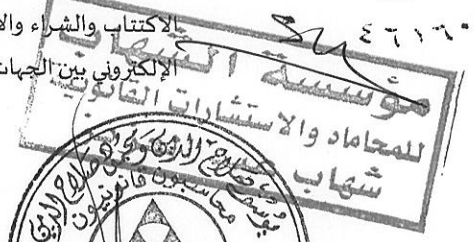 الاكتتاب والشراء وال
الإلكتروني بين الجهات
٤٦١٦٦
مؤسسة الشهاب
للمحاماه والاستشارات القانونية
شهاب
محاسبون قانونيون